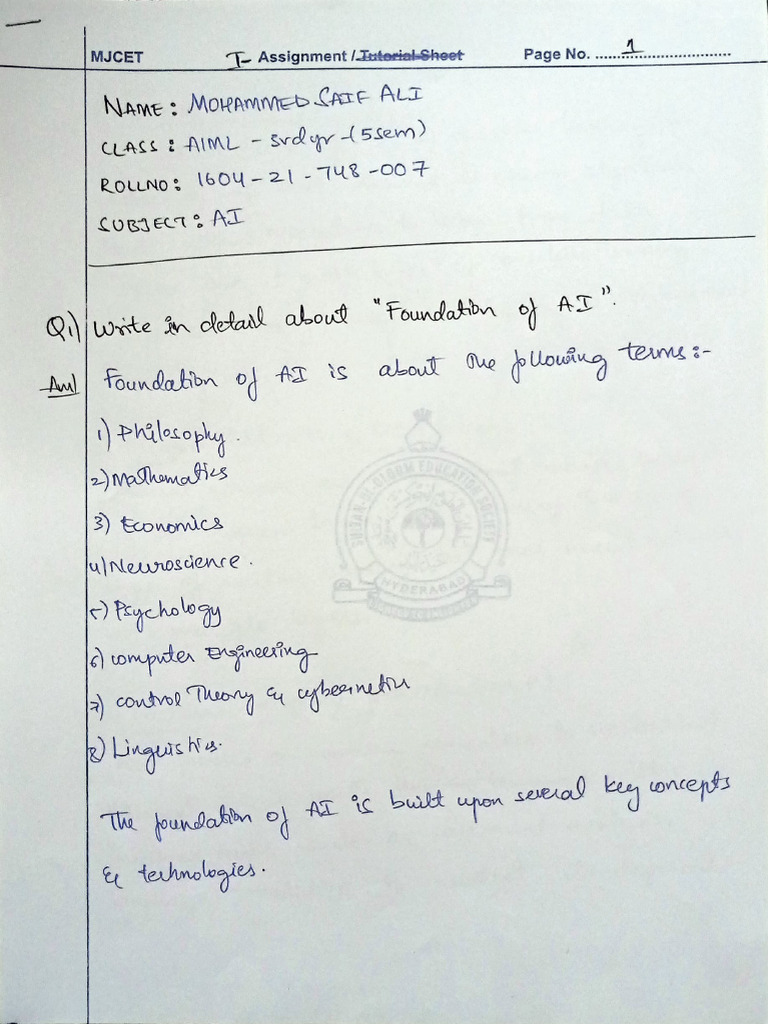 MJCET I- Assignment / Tutorial Sheet Page No. 1
NAME: MOHAMMED SAIF ALI
CLASS: AIML - 3rdyr - (5sem)
ROLLNO: 1604-21-748-007
SUBJECT: AI
Q1) Write in detail about "Foundation of AI".
Ans) Foundation of AI is about the following terms:-
1) Philosophy.
2) Mathematics
3) Economics
4) Neuroscience.
5) Psychology
6) computer Engineering
7) control Theory & cybernetics
8) Linguistics.
SULTAN-UL-ULOOM EDUCATION SOCIETY
HYDERABAD
The foundation of AI is built upon several key concepts
& technologies.